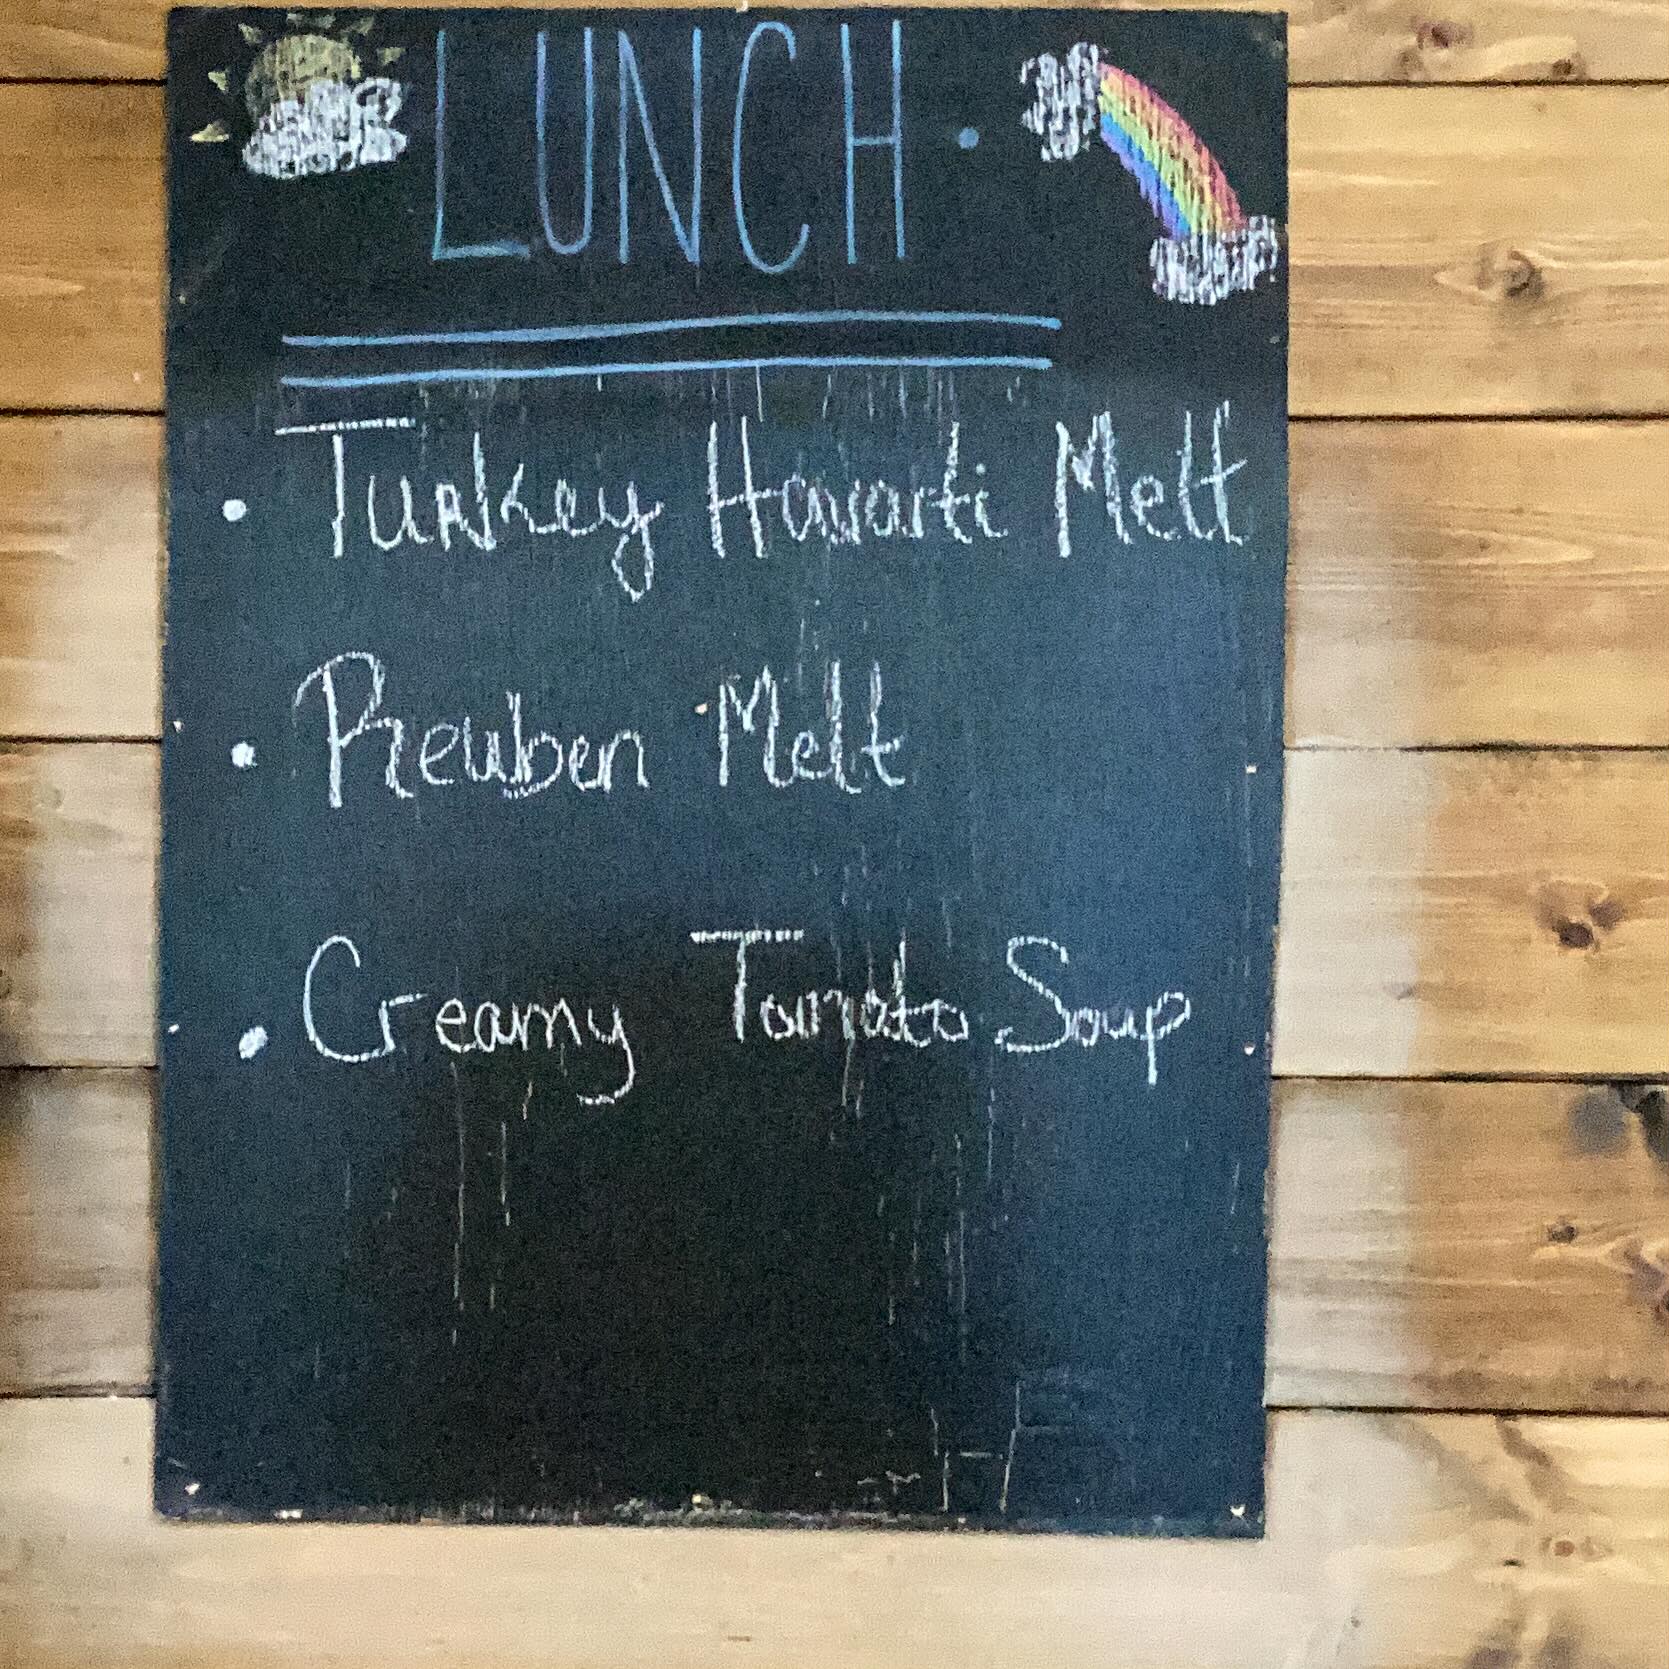 LUNCH.
• Turkey Havarti Melt
• Reuben Melt
• Creamy Tomato Soup